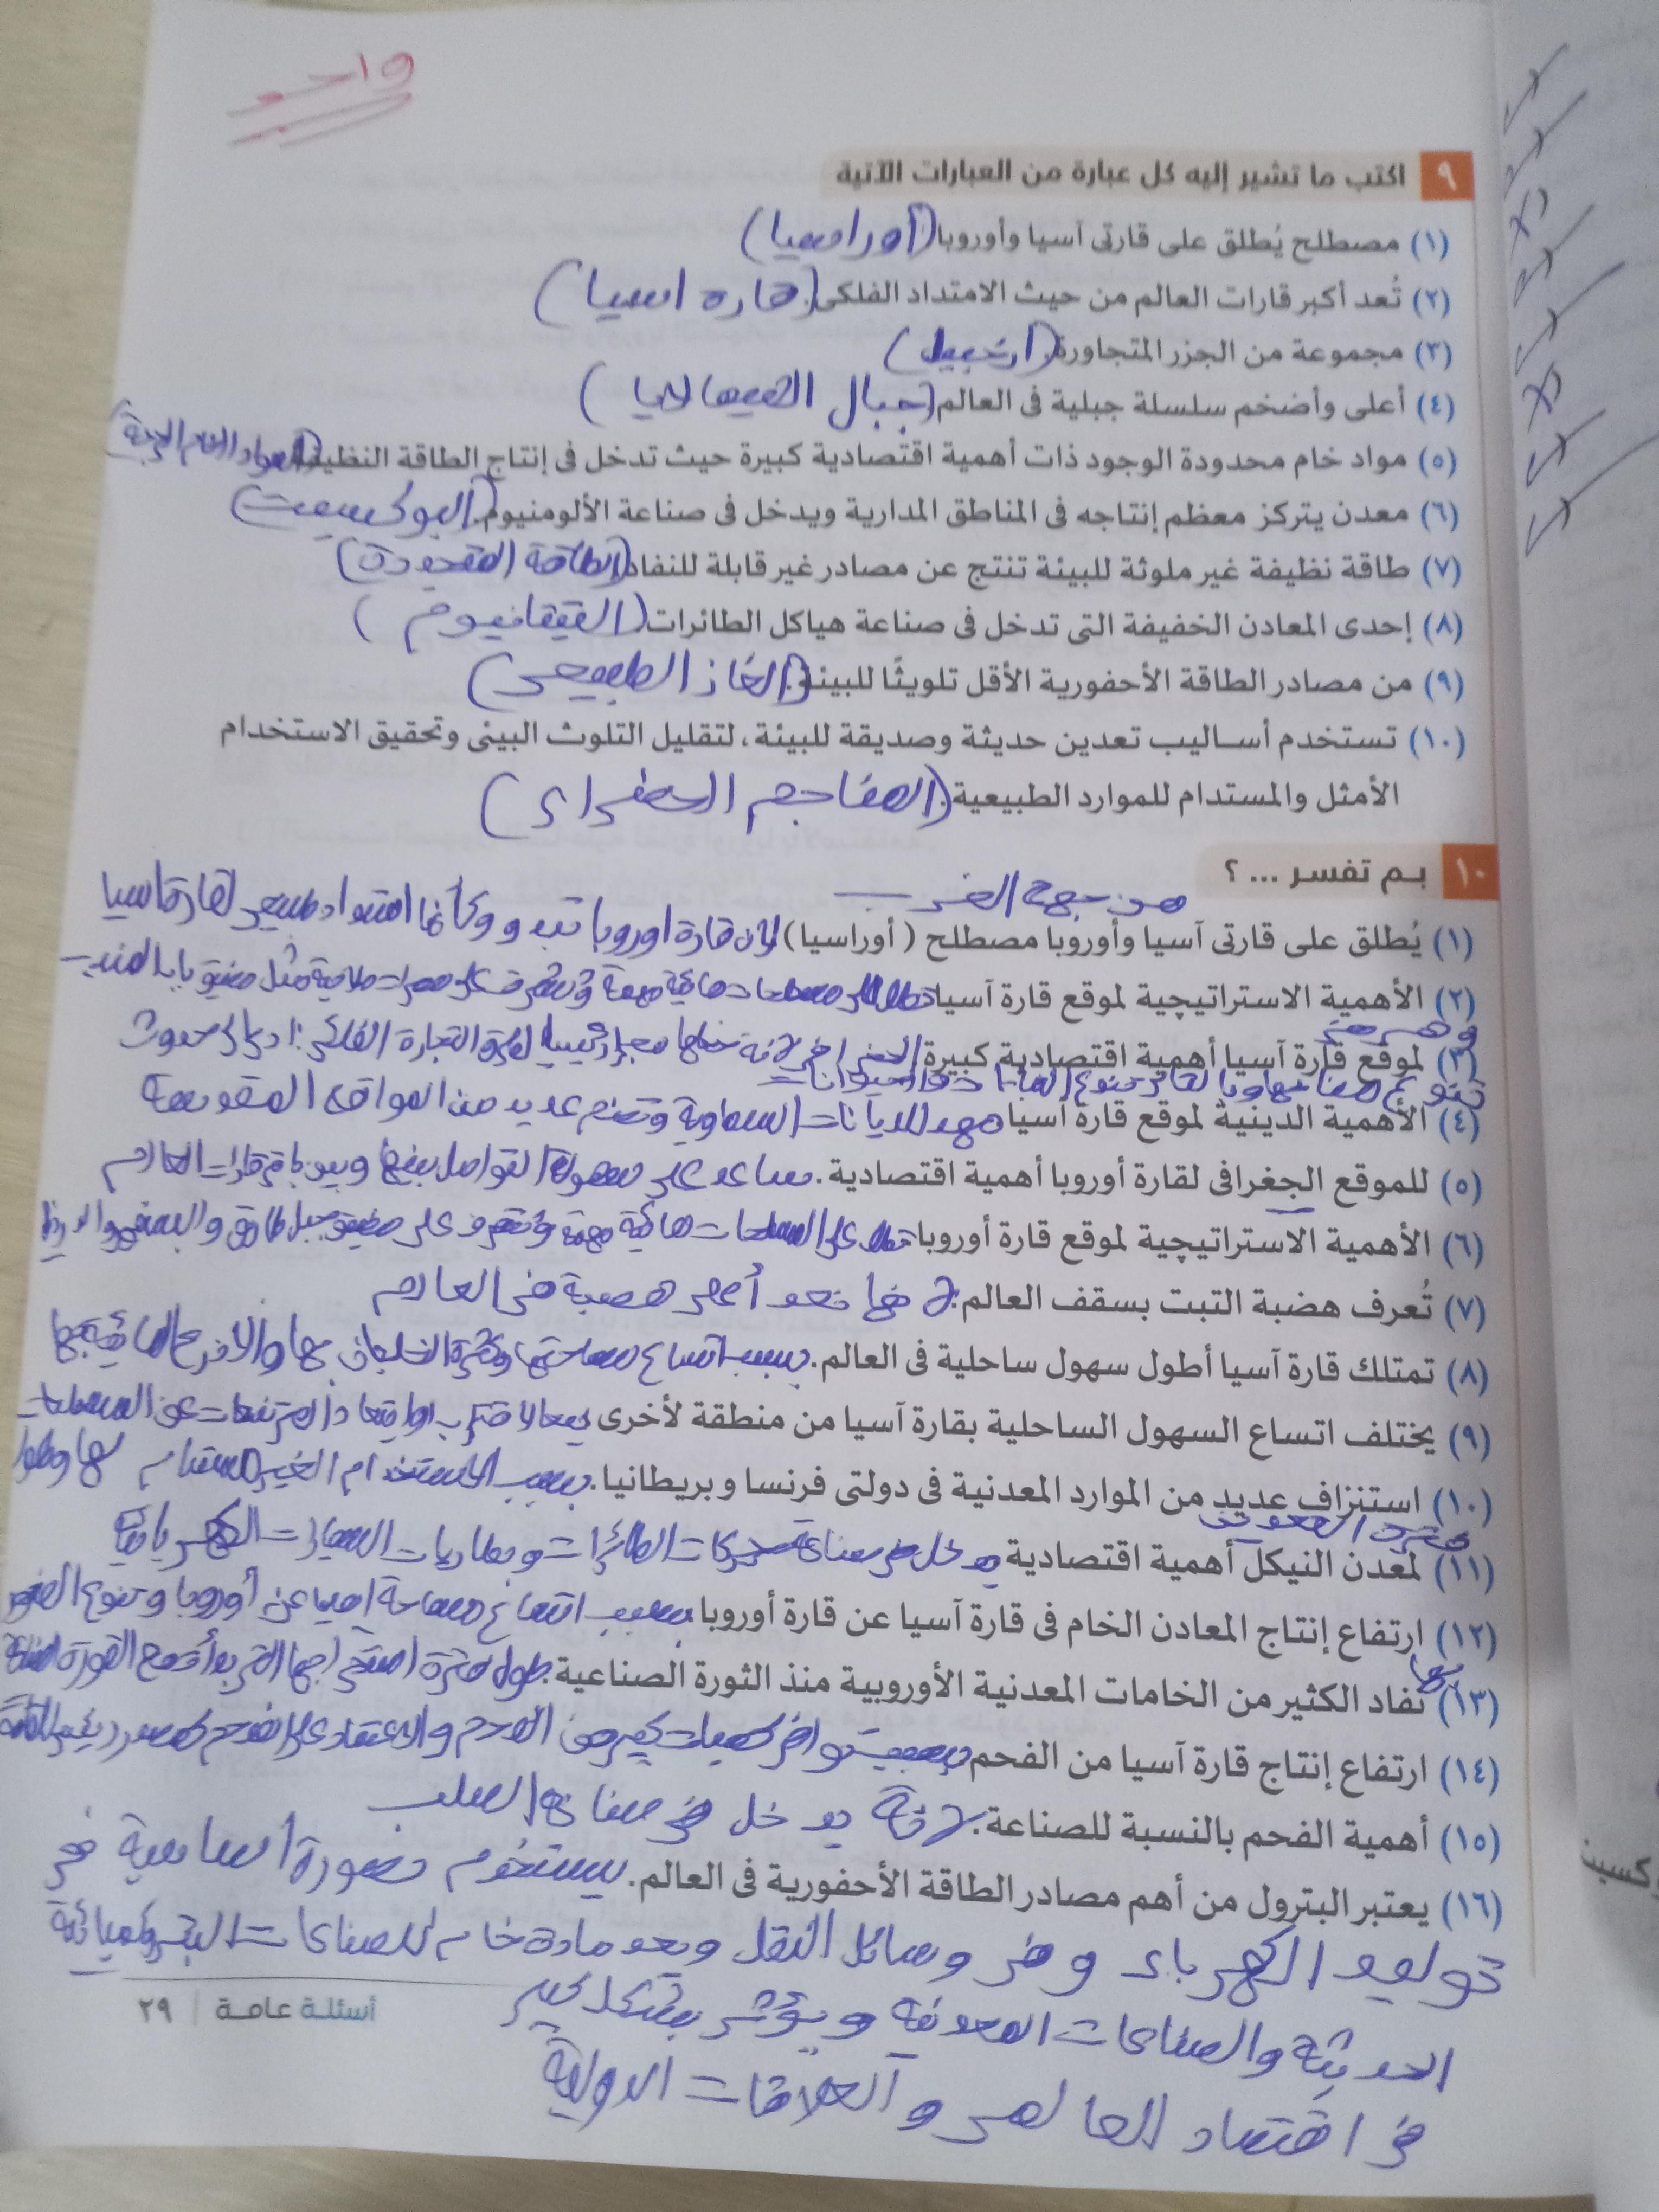 واحد
٩ اكتب ما تشير إليه كل عبارة من العبارات الآتية
(١) مصطلح يُطلق على قارتى آسيا وأوروبا (أوراسيا)
(٢) تُعد أكبر قارات العالم من حيث الامتداد الفلكى. (قاره اسيا)
(٣) مجموعة من الجزر المتجاورة. (ارخبيل)
(٤) أعلى وأضخم سلسلة جبلية فى العالم (جبال الهيمالايا)
(٥) مواد خام محدودة الوجود ذات أهمية اقتصادية كبيرة حيث تدخل فى إنتاج الطاقة النظيفة (المواد الخام الحرجة)
(٦) معدن يتركز معظم إنتاجه فى المناطق المدارية ويدخل فى صناعة الألومنيوم. (البوكسيت)
(٧) طاقة نظيفة غير ملوثة للبيئة تنتج عن مصادر غير قابلة للنفاد (الطاقة المتجددة)
(٨) إحدى المعادن الخفيفة التى تدخل فى صناعة هياكل الطائرات (التيتانيوم)
(٩) من مصادر الطاقة الأحفورية الأقل تلويثًا للبيئة. (الغاز الطبيعى)
(١٠) تستخدم أساليب تعدين حديثة وصديقة للبيئة، لتقليل التلوث البيئى وتحقيق الاستخدام
الأمثل والمستدام للموارد الطبيعية. (المناجم الخضراء)
١٠ بم تفسر ... ؟
من جهة الغرب
(١) يُطلق على قارتى آسيا وأوروبا مصطلح (أوراسيا) لان قارة اوروبا تبدو وكأنها امتداد طبيعى لقارة اسيا
(٢) الأهمية الاستراتيچية لموقع قارة آسيا تطل على مسطحات مائية مهمة وتشرف على ممرات ملاحية مثل مضيق باب المندب
(٣) لموقع قارة آسيا أهمية اقتصادية كبيرة
(٤) الأهمية الدينية لموقع قارة آسيا مهد للديانات السماوية وتضم عديد من المواقع المقدسة
(٥) للموقع الجغرافى لقارة أوروبا أهمية اقتصادية. ساعد على سهولة التواصل بينها وبين باقى قارات العالم
(٦) الأهمية الاستراتيچية لموقع قارة أوروبا تطل على المسطحات مائية مهمة وتشرف على مضيق جبل طارق والبسفور والدردنيل
(٧) تُعرف هضبة التبت بسقف العالم. لانها تعد أعلى هضبة فى العالم
(٨) تمتلك قارة آسيا أطول سهول ساحلية فى العالم. بسبب اتساع مساحتها وكثرة الخلجان بها والاذرع المائية بها
(٩) يختلف اتساع السهول الساحلية بقارة آسيا من منطقة لأخرى تبعا لاقتراب او ابتعاد المرتفعات عن المسطحات
(١٠) استنزاف عديد من الموارد المعدنية فى دولتى فرنسا وبريطانيا. بسبب الاستخدام الغير المستدام لها وطول
فترة التعدين
(١١) لمعدن النيكل أهمية اقتصادية يدخل فى صناعة محركات الطائرات وبطاريات السيارات الكهربائية
(١٢) ارتفاع إنتاج المعادن الخام فى قارة آسيا عن قارة أوروبا بسبب اتساع مساحة اسيا عن أوروبا وتنوع الصخور
بها
(١٣) نفاد الكثير من الخامات المعدنية الأوروبية منذ الثورة الصناعية. طول فترة استخراجها التى بدأت مع الثورة الصناعية
(١٤) ارتفاع إنتاج قارة آسيا من الفحم بسبب توافر كميات كبيره من الفحم والاعتماد على الفحم كمصدر رئيسى للطاقة
(١٥) أهمية الفحم بالنسبة للصناعة. لانه يدخل فى صناعة الصلب
(١٦) يعتبر البترول من أهم مصادر الطاقة الأحفورية فى العالم. يستخدم بصورة اساسية فى
توليد الكهرباء وفى وسائل النقل ويعد مادة خام للصناعات البتروكيميائية
الحديثة والصناعات المعدنية ويؤثر بشكل كبير
فى اقتصاد العالمى والعلاقات الدولية
أسئلة عامة | ٢٩
وكسيت